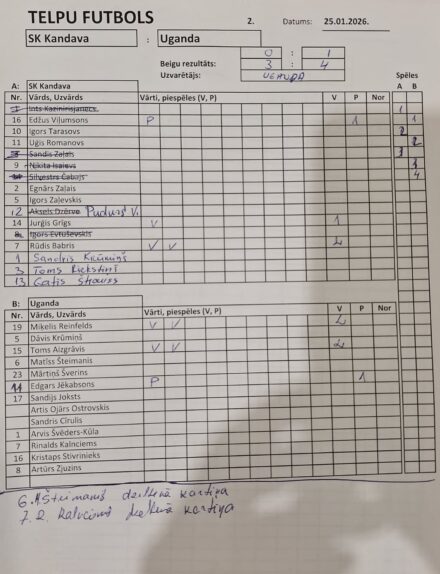 TELPU FUTBOLS 2. Datums: 25.01.2026.
SK Kandava : Uganda
0 : 1
Beigu rezultāts: 3 : 4
Uzvarētājs: UGANDA
Spēles
A: SK Kandava A B
Nr. Vārds, Uzvārds Vārti, piespēles (V, P) V P Nor
Ints Kazinirisjanecs 1
16 Edžus Viļumsons P 1 1
10 Igors Tarasovs 2
11 Uģis Romanovs 2
Sandis Zaļais 3
9 Ņikita Isaievs 3
Silvestrs Čabajs 4
2 Egnārs Zaļais
5 Igors Zaļevskis
12 Aksels Dzērve Pudurs V.
14 Jurģis Grigs V 1
8 Igors Evtuševskis
7 Rūdis Babris V V 2
1 Sandris Krūmiņš
3 Toms Rickstiņš
13 Gatis Štrauss
B: Uganda
Nr. Vārds, Uzvārds Vārti, piespēles (V, P) V P Nor
19 Mikelis Reinfelds V V 2
5 Dāvis Krūmiņš
15 Toms Aizgrāvis V V 2
6 Matīss Šteimanis
23 Mārtiņš Šverins
14 Edgars Jēkabsons P 1
17 Sandijs Joksts
Artis Ojārs Ostrovskis
Sandris Cīrulis
1 Arvis Švēders-Kūla
7 Rinalds Kalnciems
16 Kristaps Stivrinieks
8 Artūrs Zjuzins
6. Šteimanis dzeltenā kartiņa
7. R. Kalnciems dzeltenā kartiņa